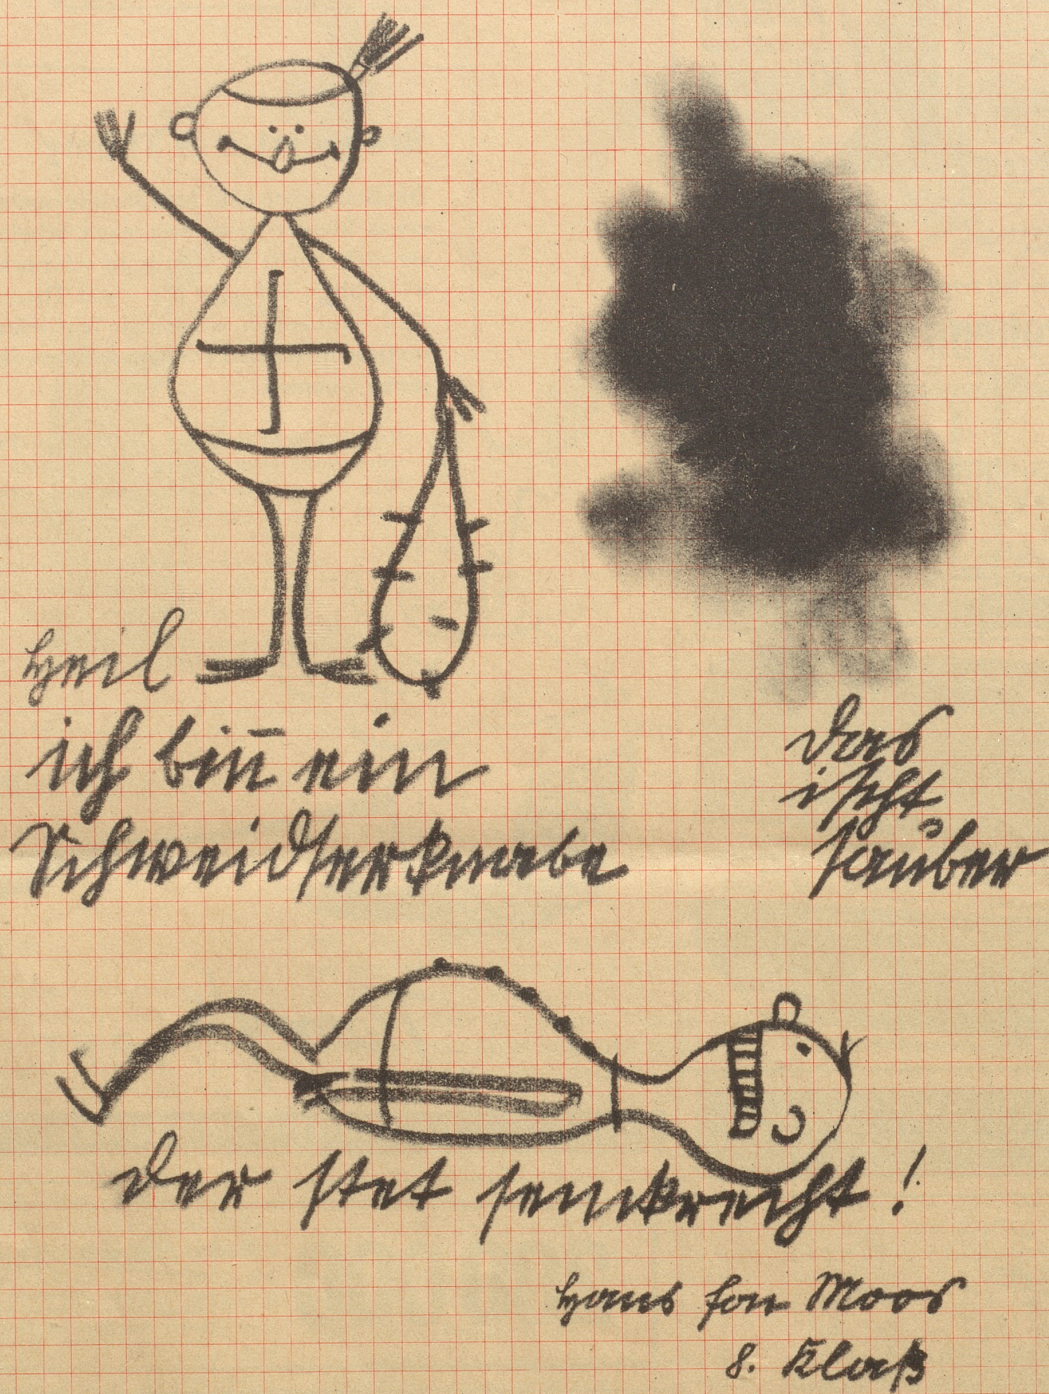 Heil
ich bin̄ ein
Schweidserknabe
das
ischt
sauber
der stet senkrecht!
Hans fon Moos
8. Klaß